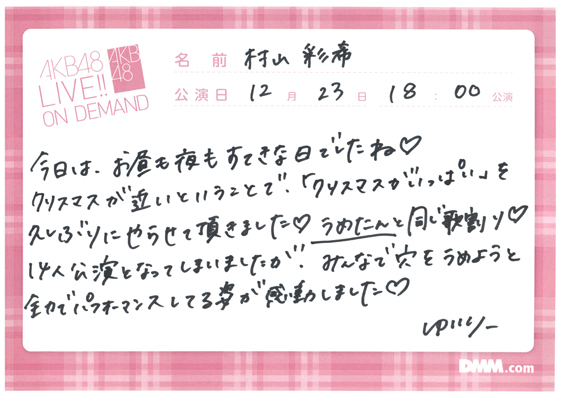 AKB48
LIVE!!
ON DEMAND
AKB
48
名前 村山彩希
公演日 12月23日 18:00公演
今日は、お昼も夜もすてきな日でしたね♡
クリスマスが近いということで、「クリスマスがいっぱい」を
久しぶりにやらせて頂きました♡ うめたんと同じ歌割り♡
14人公演となってしまいましたが、みんなで穴をうめようと
全力でパフォーマンスしてる姿が感動しました♡
ゆいりー
DMM.com